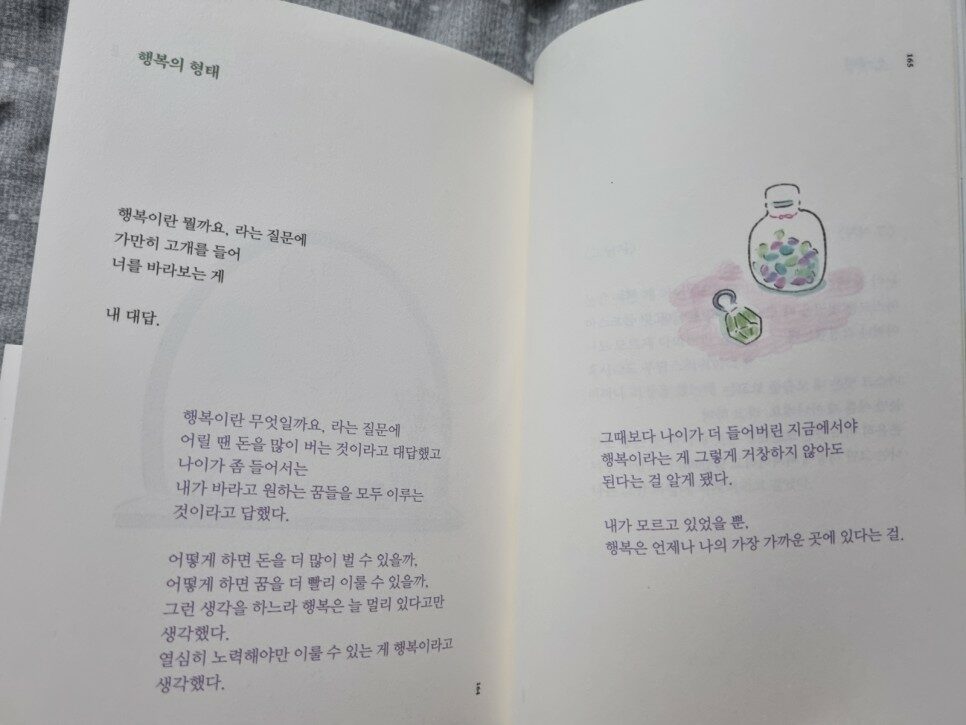 행복의 형태
행복이란 뭘까요, 라는 질문에
가만히 고개를 들어
너를 바라보는 게
내 대답.
행복이란 무엇일까요, 라는 질문에
어릴 땐 돈을 많이 버는 것이라고 대답했고
나이가 좀 들어서는
내가 바라고 원하는 꿈들을 모두 이루는
것이라고 답했다.
어떻게 하면 돈을 더 많이 벌 수 있을까,
어떻게 하면 꿈을 더 빨리 이룰 수 있을까,
그런 생각을 하느라 행복은 늘 멀리 있다고만
생각했다.
열심히 노력해야만 이룰 수 있는 게 행복이라고
생각했다.
164
165
그때보다 나이가 더 들어버린 지금에서야
행복이라는 게 그렇게 거창하지 않아도
된다는 걸 알게 됐다.
내가 모르고 있었을 뿐,
행복은 언제나 나의 가장 가까운 곳에 있다는 걸.